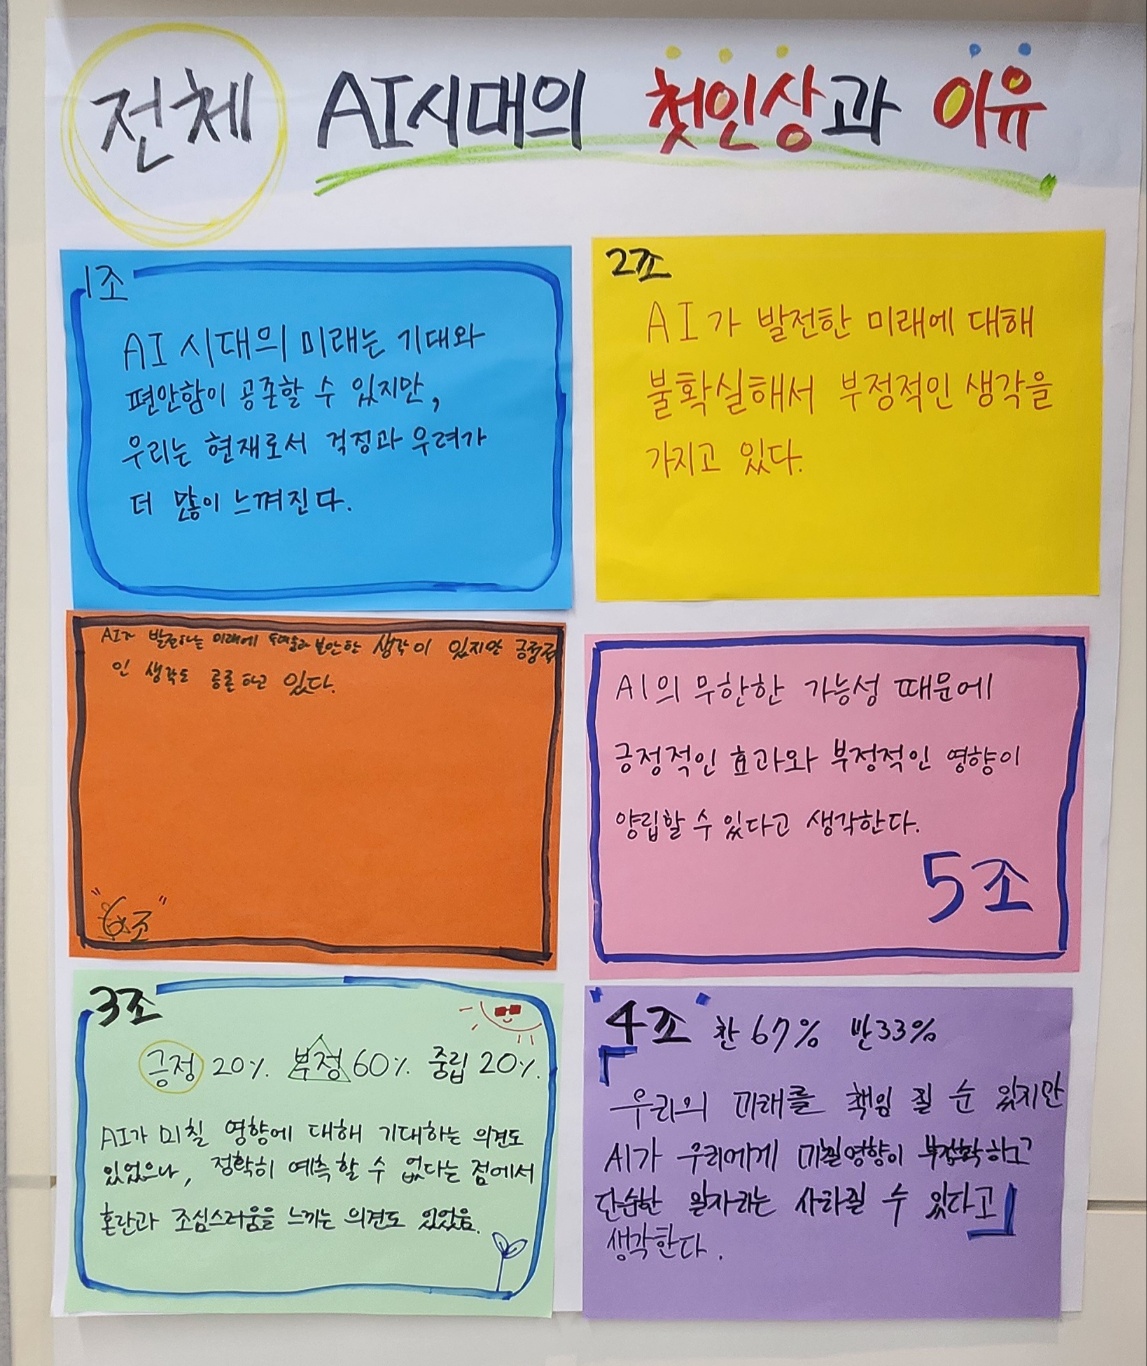 전체 AI시대의 첫인상과 이유
1조
AI 시대의 미래는 기대와
편안함이 공존할 수 있지만,
우리는 현재로서 걱정과 우려가
더 많이 느껴진다.
2조
AI가 발전한 미래에 대해
불확실해서 부정적인 생각을
가지고 있다.
AI가 발전하는 미래에 불안한 생각이 있지만 긍정적
인 생각도 공존하고 있다.
"6조"
AI의 무한한 가능성 때문에
긍정적인 효과와 부정적인 영향이
양립할 수 있다고 생각한다.
5조
3조
긍정 20% 부정 60% 중립 20%.
AI가 미칠 영향에 대해 기대하는 의견도
있었으나, 정확히 예측할 수 없다는 점에서
혼란과 조심스러움을 느끼는 의견도 있었음.
"4조" 찬 67% 반 33%
「우리의 미래를 책임 질 순 있지만
AI가 우리에게 미칠영향이 부정확하고
단순한 일자리는 사라질 수 있다고」
생각한다.